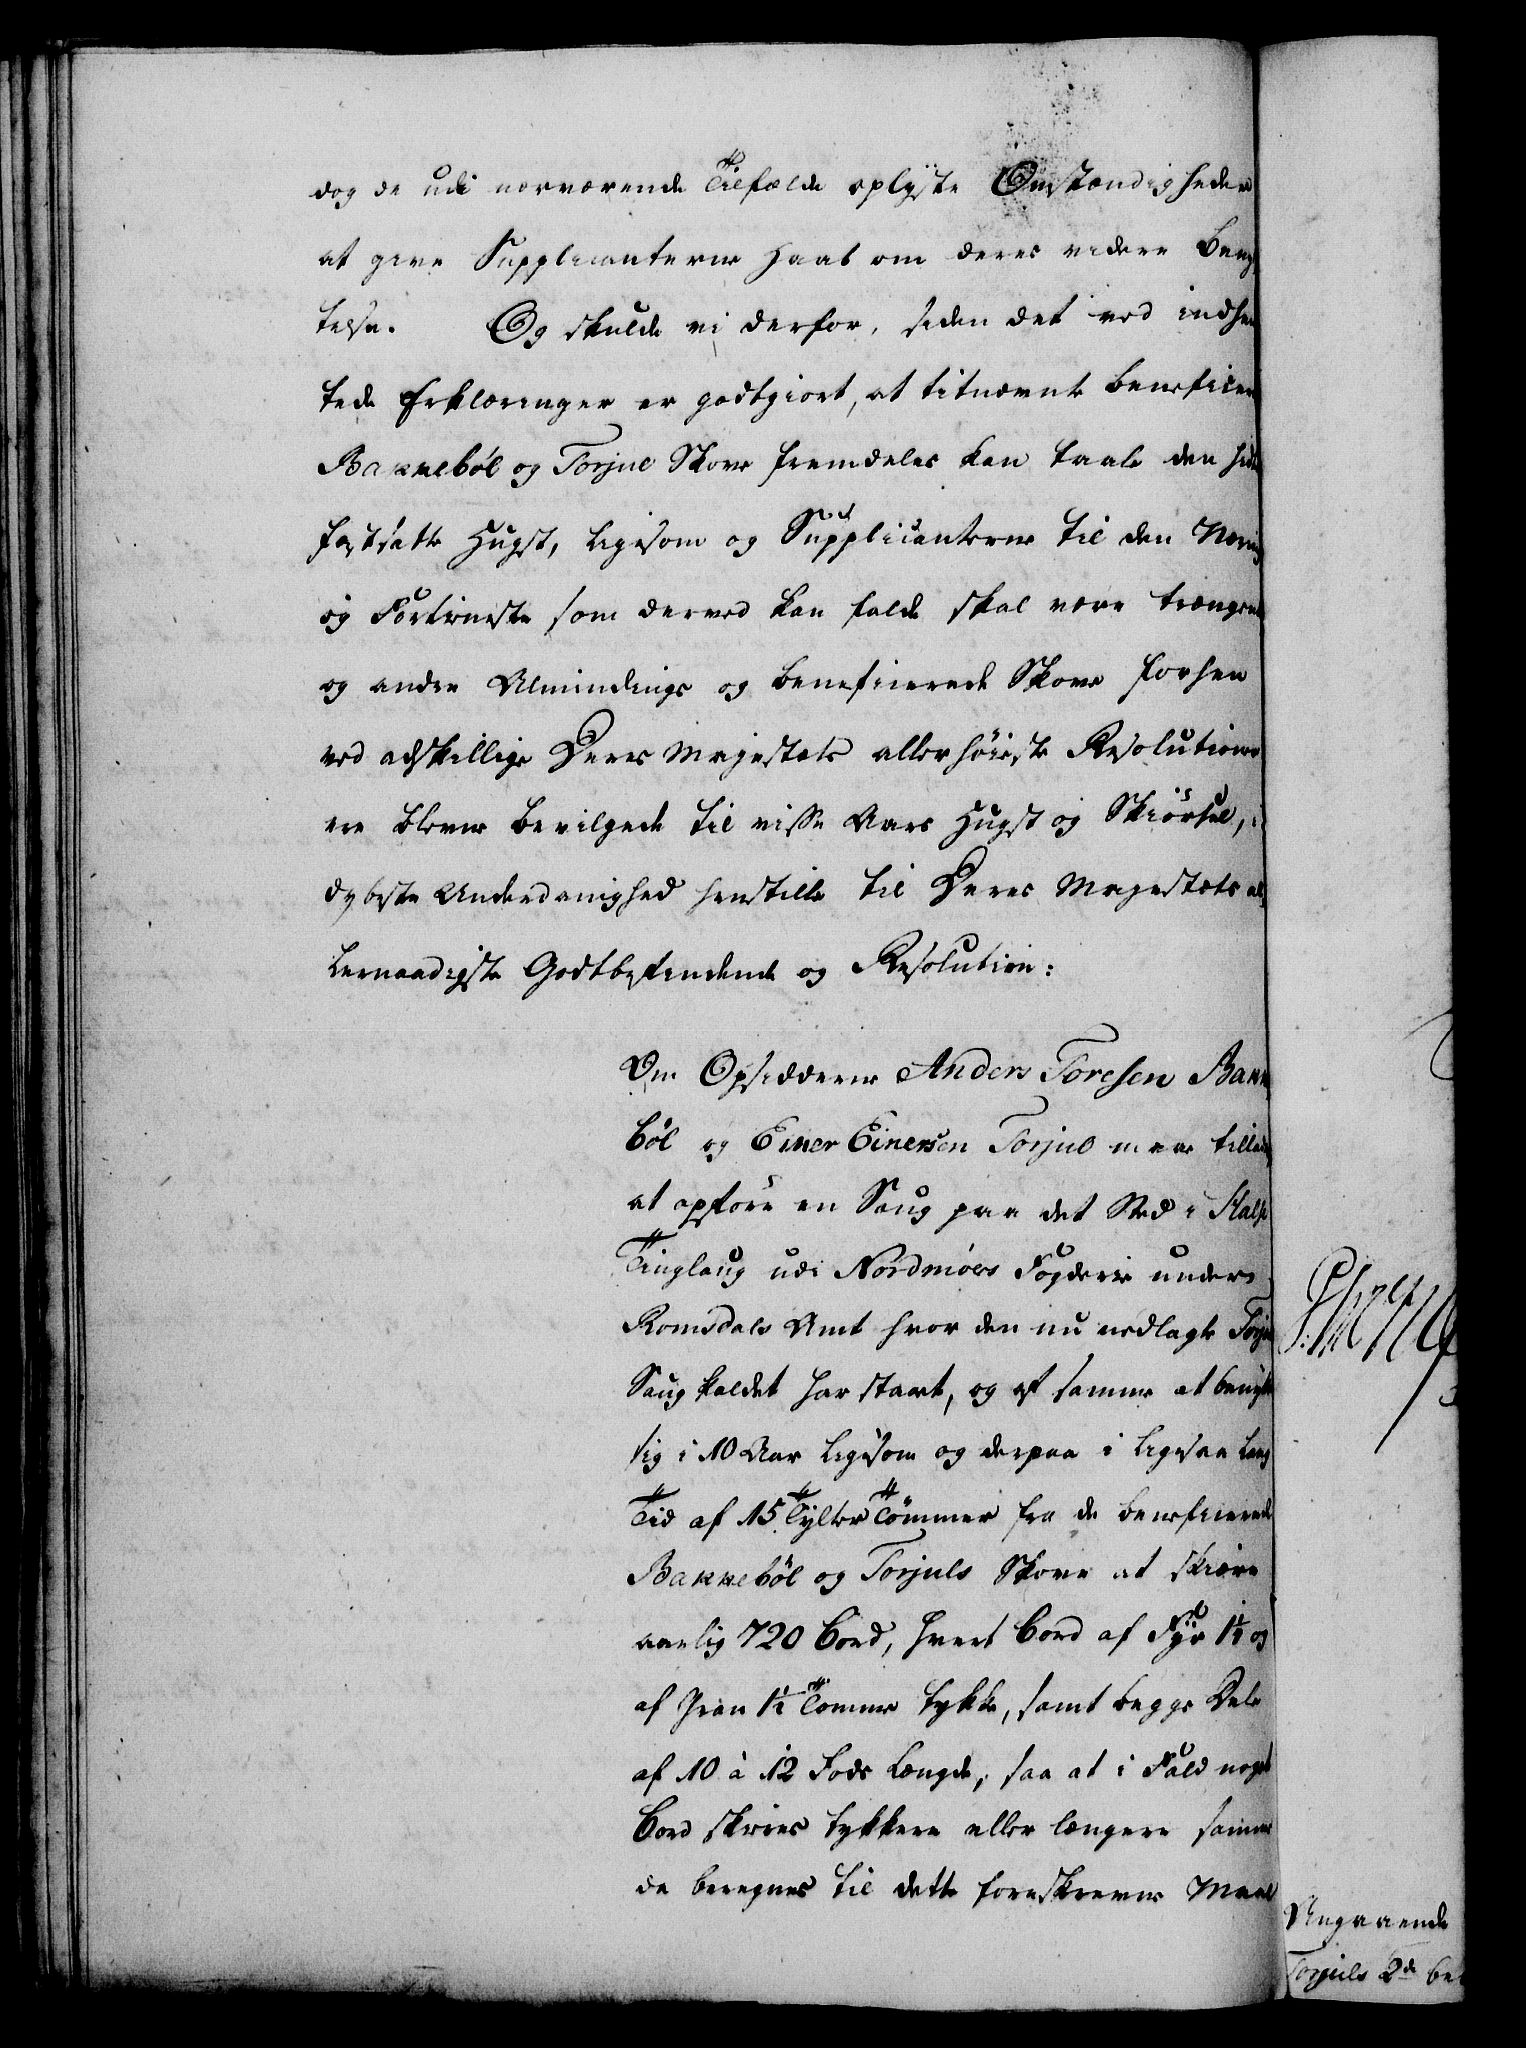 dog de udi nærværende Tilfælde oplyste Omstændigheder
at give Supplicanterne Haab om deres videre Beny
telse. Og skulde vi derfor, siden det ved indhen
tede Erklæringer er godtgiort, at titnævnte beneficere
Bakkebøl og Torjul Skove fremdeles kan taale den hid
fastsatte Hugst, ligesom og Supplicanterne til den Næring
og Fortieneste som derved kan falde skal være trængende
og andre Almindings og beneficerede Skove forhen
ved adskillige Deres Majestæts allerhøieste Resolutioner
ere blevne bevilgede til visse Aars Hugst og Skiørsel, i
dybeste Underdanighed henstille til Deres Majestæts al
lernaadigste Godtbefindende og Resolution:
Om Opsidderne Anders Toresen Bakke
bøl og Einer Einersen Torjul maae tillades
at opføre en Saug paa det Sted i Halse
Tinglaug udi Nordmøers Fogderie under
Romsdals Amt hvor den nu nedlagte Torjul
Saug kaldet har staaet, og af samme at benytte
sig i 10 Aar ligesom og derpaa i ligesaa lang
Tid af 15 Tylter Tømmer fra de beneficerede
Bakkebøl og Torjuls Skove at skiære
aarlig 720 Bord, hvert Bord af Fyr 1½ og
af Gran 1¼ Tomme tykke, samt begge Dele
af 10 à 12 Fods Længde, saa at i Fald noget
Bord skæres tykkere eller længere samme
da beregnes til dette foreskrevne Maal
Angaaende
Torjuls 2de be